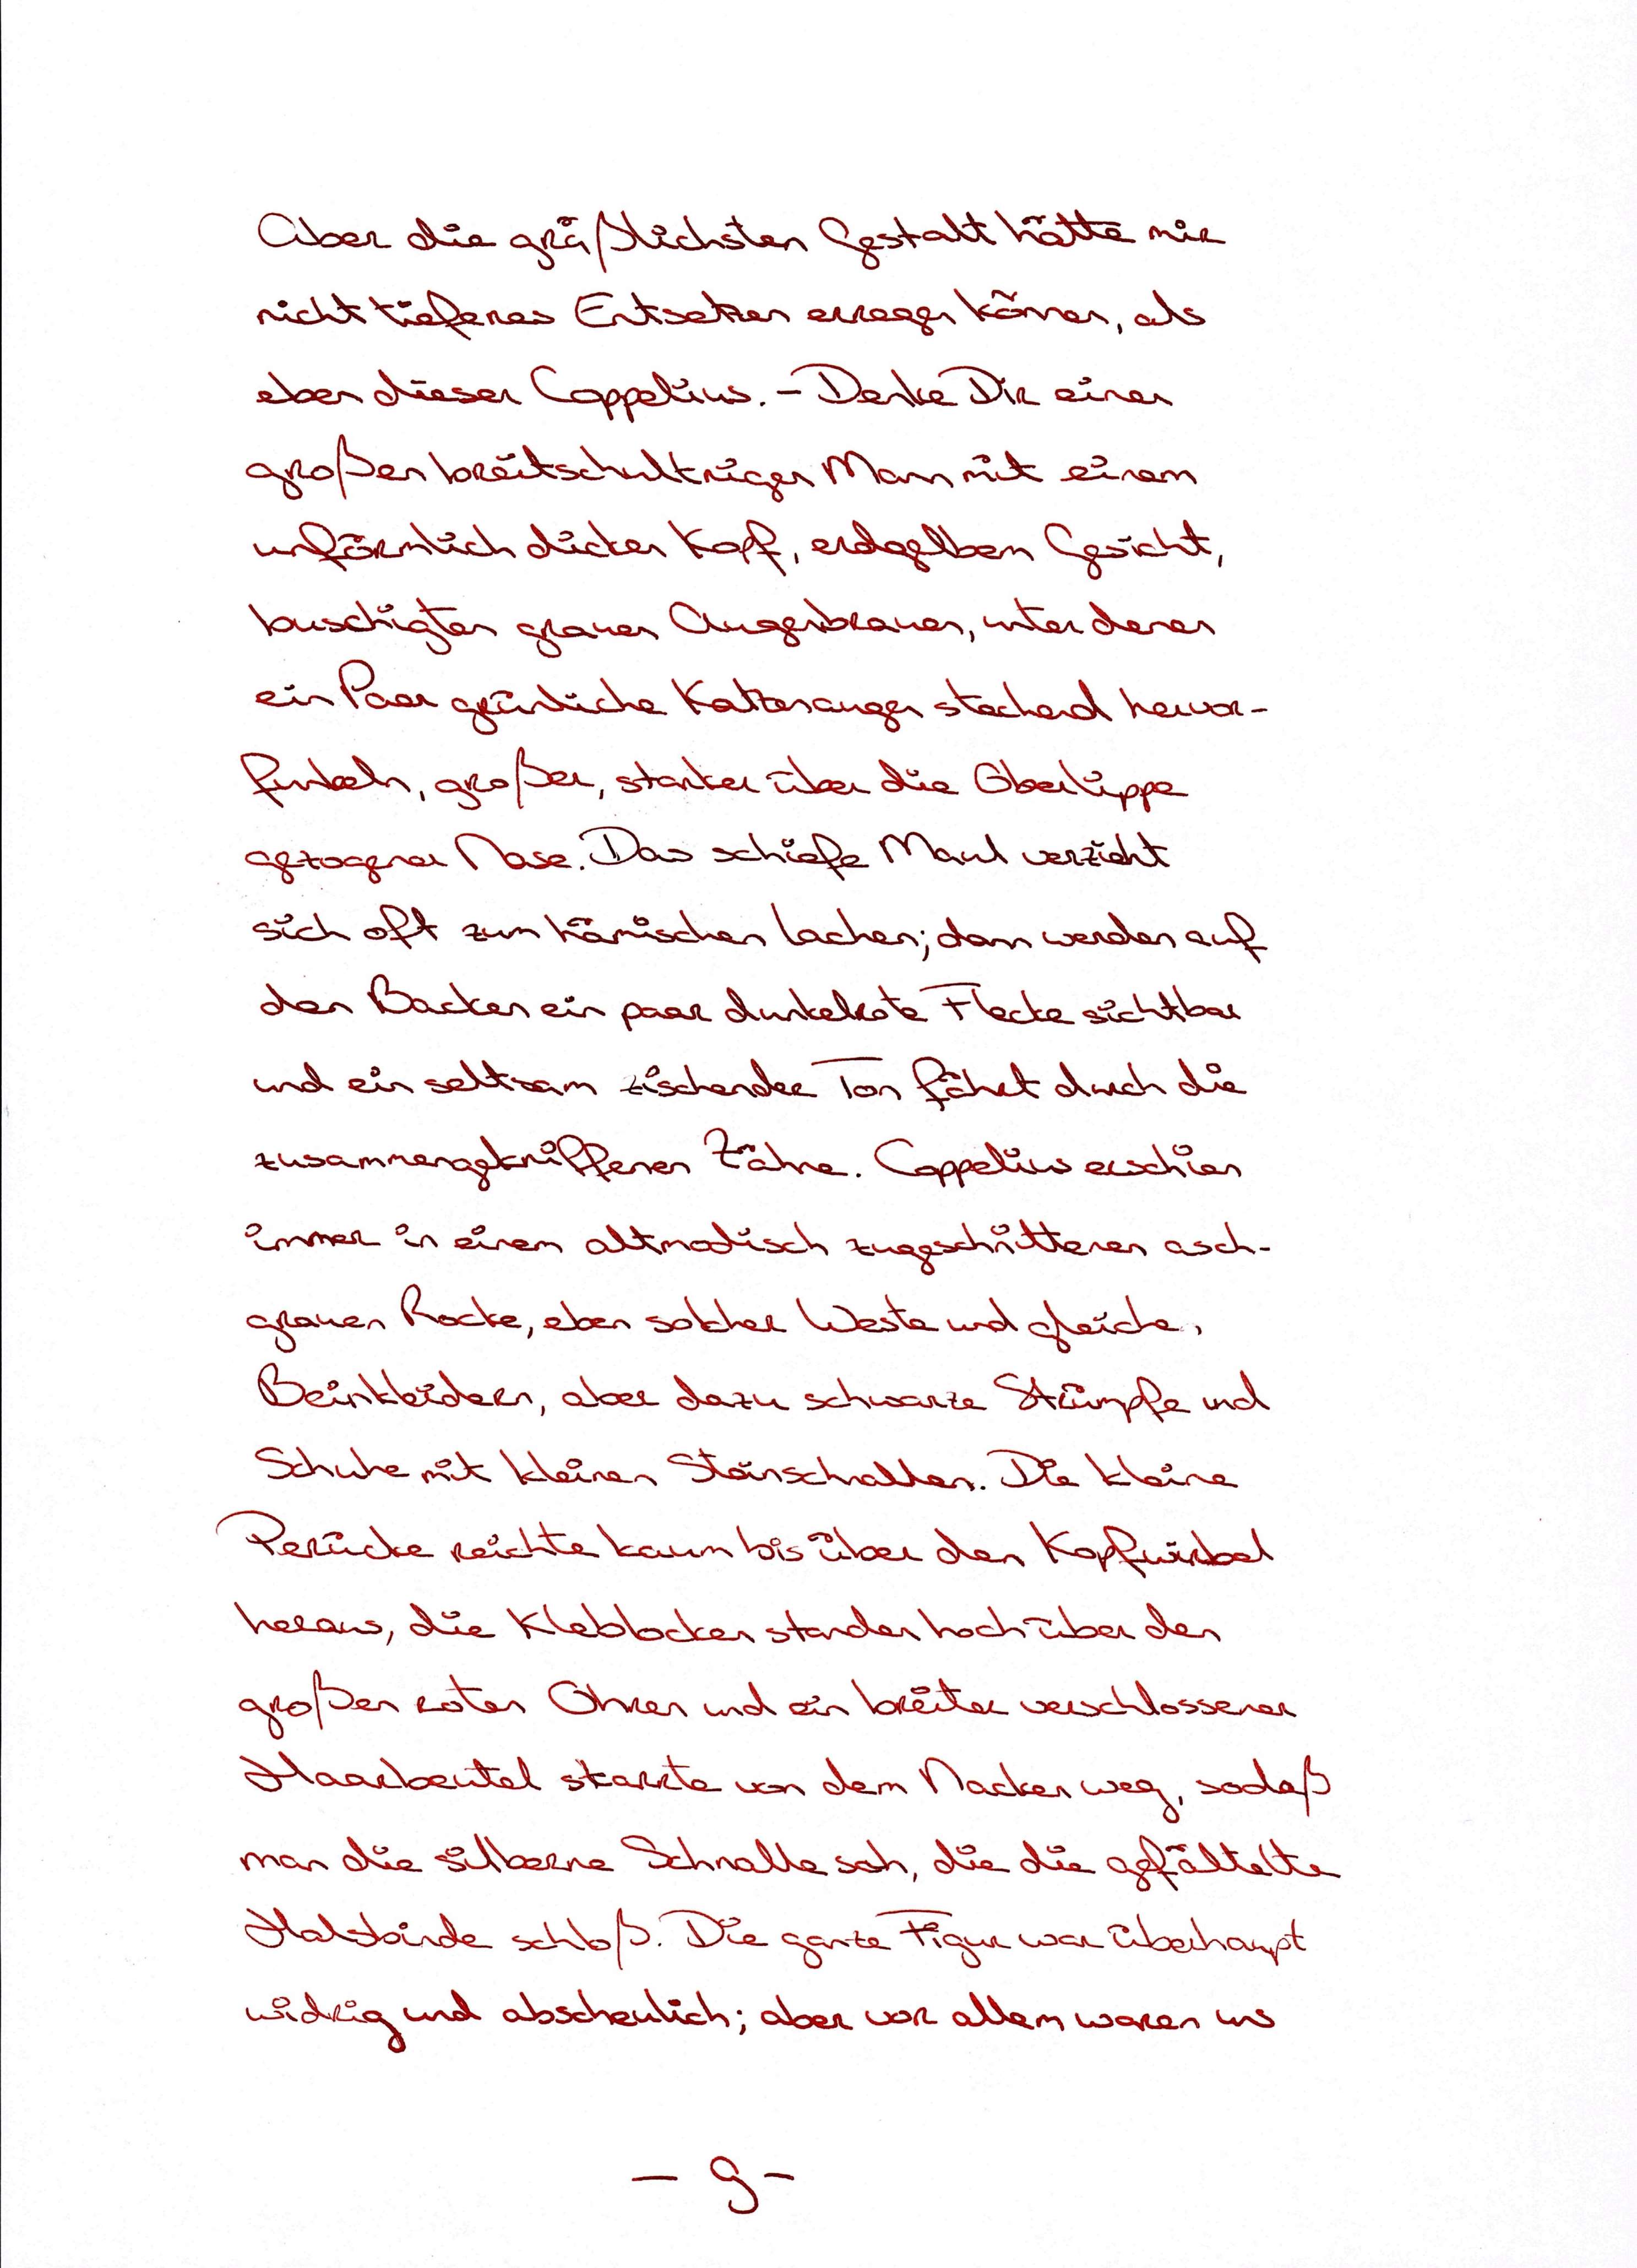 Aber die gräßlichsten Gestalt hätte mir
nicht tieferes Entsetzen erregen können, als
eben dieser Coppelius. – Denke Dir einen
großen breitschultrigen Mann mit einem
unförmlich dicken Kopf, erdgelbem Gesicht,
buschigten grauen Augenbrauen, unter denen
ein Paar grünliche Katzenaugen stechend hervor-
funkeln, großer, starker über die Oberlippe
gezogener Nase. Das schiefe Maul verzieht
sich oft zum hämischen Lachen; dann werden auf
den Backen ein paar dunkelrote Flecke sichtbar
und ein seltsam zischender Ton fährt durch die
zusammengekniffenen Zähne. Coppelius erschien
immer in einem altmodisch zugeschnittenen asch-
grauen Rocke, eben solcher Weste und gleichen
Beinkleidern, aber dazu schwarze Strümpfe und
Schuhe mit kleinen Steinschnallen. Die kleine
Perücke reichte kaum bis über den Kopfwirbel
heraus, die Kleblocken standen hoch über den
großen roten Ohren und ein breiter verschlossener
Haarbeutel starrte von dem Nacken weg, sodaß
man die silberne Schnalle sah, die die gefältelte
Halsbinde schloß. Die ganze Figur war überhaupt
widrig und abscheulich; aber vor allem waren uns
– 9 –